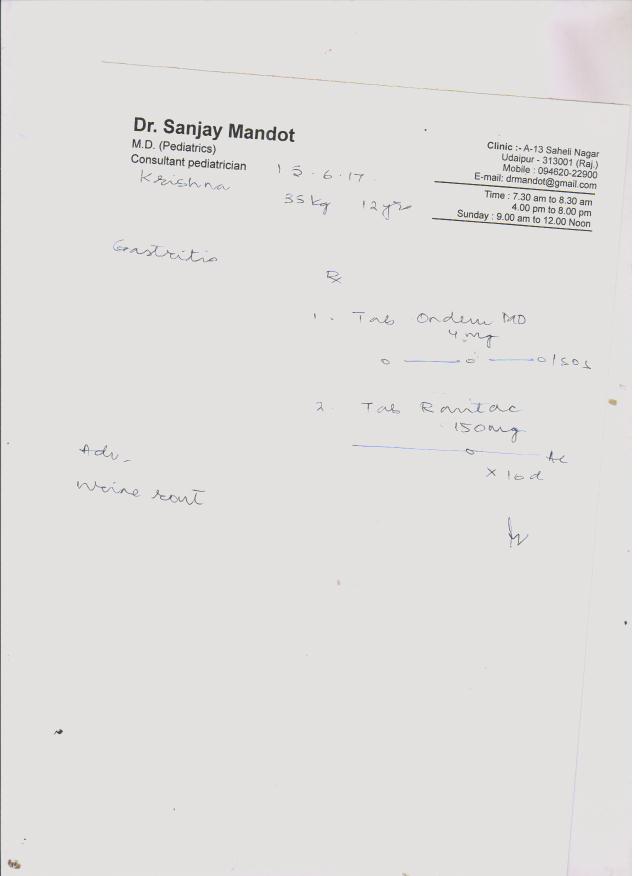 Dr. Sanjay Mandot
M.D. (Pediatrics)
Consultant pediatrician
Clinic :- A-13 Saheli Nagar
Udaipur - 313001 (Raj.)
Mobile : 094620-22900
E-mail: drmandot@gmail.com
Time : 7.30 am to 8.30 am
4.00 pm to 8.00 pm
Sunday : 9.00 am to 12.00 Noon
Krishna
15.6.17
35 kg 12 yr
Gastritis
Rx
1. Tab Ondem MD
4 mg
o — o — o/SOS
2. Tab Rantac
150mg
— o — Ac
x 10 d
Adv.
Urine rout